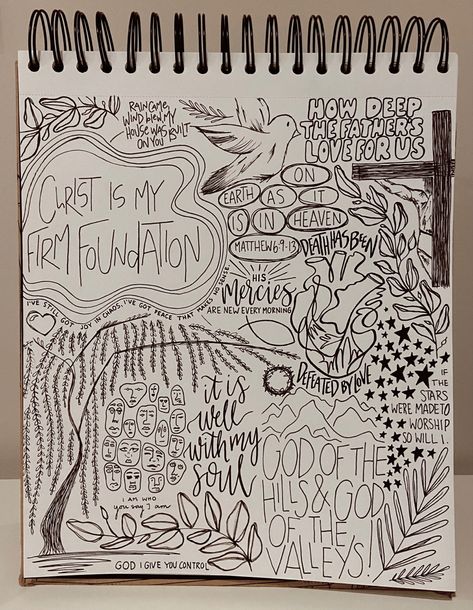 RAIN CAME,
WIND blew, MY
HOUSE WAS BUILT
ON YOU
HOW DEEP
THE FATHER'S
LOVE FOR US
CHRIST IS MY
FIRM FOUNDATION
ON
EARTH AS IT
IS IN HEAVEN
MATTHEW 6:9-13
DEATH HAS BEEN
DEFEATED BY LOVE
HIS
Mercies
ARE NEW EVERY MORNING
I'VE STILL GOT JOY IN CHAOS, I'VE GOT PEACE THAT MAKES NO SENSE
IF
THE
STARS
WERE MADE TO
WORSHIP
SO WILL I.
it is
well
with my
soul
I AM WHO
you say I am
GOD OF THE
HILLS & GOD
OF THE
VALLEYS!
GOD I GIVE YOU CONTROL